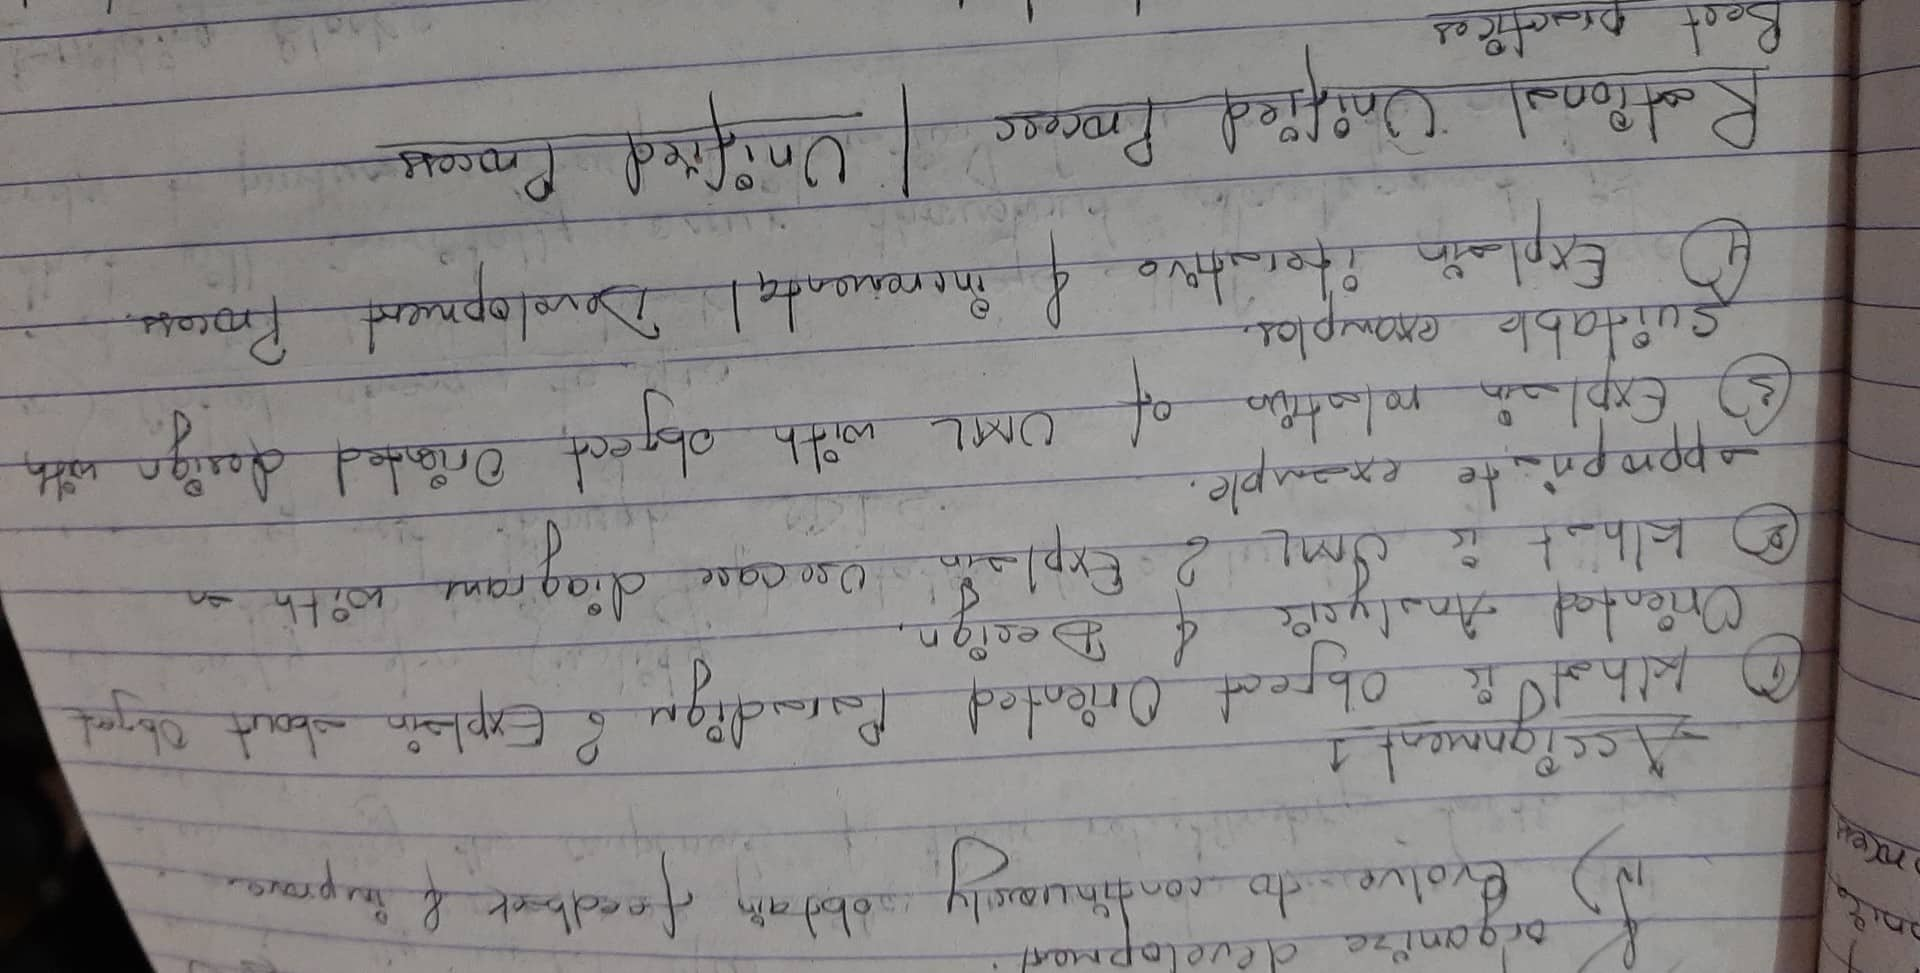 & organize development.
iv) Evolve to continuously obtain feedback & improve.
Assignment 1
① What is Object Oriented Paradigm ? Explain about Object
Oriented Analysis & Design.
② What is UML ? Explain Usecase diagram with an
appropriate example.
③ Explain relation of UML with object Oriented design with
suitable examples.
④ Explain iterative & incremental Development Process.
Rational Unified Process / Unified Process
Best practices